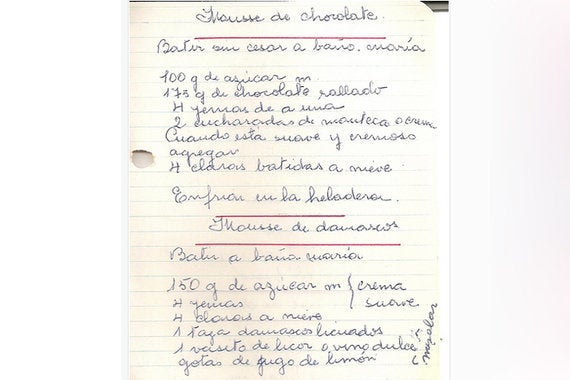 Mousse de chocolate.
Batir sin cesar a baño. maría
100 g de azúcar m
175 g de chocolate rallado
4 yemas de a una
2 cucharadas de manteca o crema
Cuando esta suave y cremoso
agregar
4 claras batidas a nieve.
Enfriar en la heladera.
Mousse de damascos
Batir a baña maría
150 g de azúcar m } crema
4 yemas } suave
4 claras a nieve
1 taza damascos licuados
1 vasito de licor o vino dulce
gotas de jugo de limón
mezclar